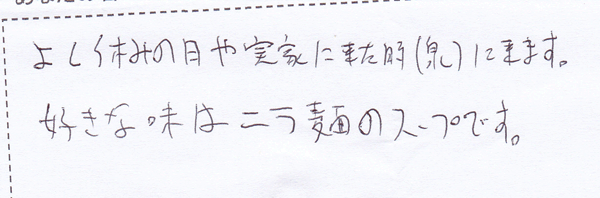 よく休みの日や実家に来た時(泉)に来ます。
好きな味はニラ麺のスープです。